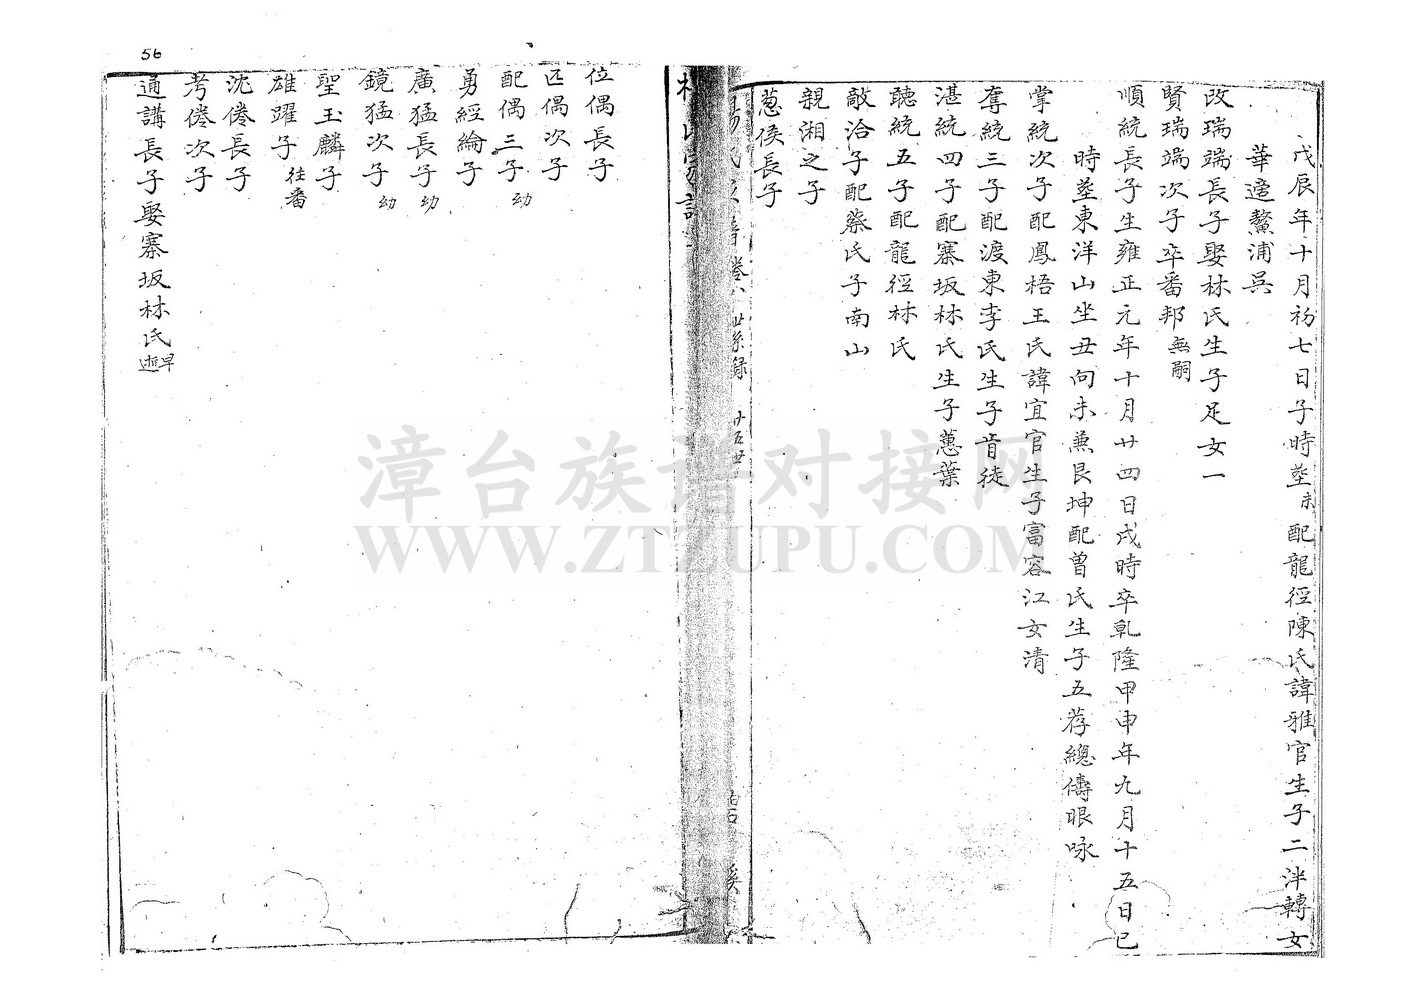 戊辰年十月初七日子時塟未配龍徑陳氏諱雅官生子二泮轉女
華適鰲浦吳
改瑞端長子娶林氏生子足女一
賢瑞端次子卒番邦無嗣
順統長子生雍正元年十月廿四日戌時卒乾隆甲申年九月十五日巳
時塟東洋山坐丑向未兼艮坤配曾氏生子五荐總儔眼咏
掌統次子配鳳梧王氏諱宜官生子富容江女清
奪統三子配渡東李氏生子肯徒
湛統四子配寨坂林氏生子蔥葉
聽統五子配龍徑林氏
敵洽子配蔡氏子南山
親湘之子
蔥侯長子
世系錄
廿五世
位偶長子
匹偶次子
配偶三子幼
勇經綸子
廣猛長子幼
鏡猛次子幼
聖玉麟子
雄躍子往番
沈倦長子
考倦次子
通講長子娶寨坂林氏早逝
56
漳台族谱对接网
WWW.ZTZUPU.COM